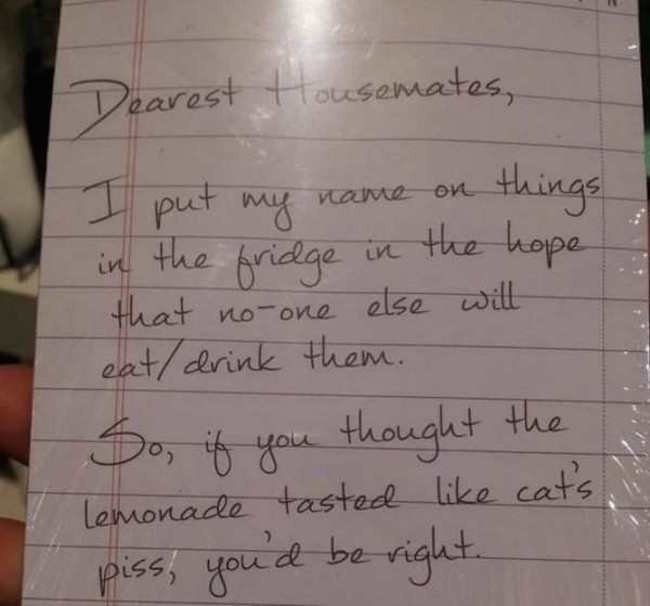 Dearest Housemates,
I put my name on things
in the fridge in the hope
that no-one else will
eat/drink them.
So, if you thought the
lemonade tasted like cat's
piss, you'd be right.